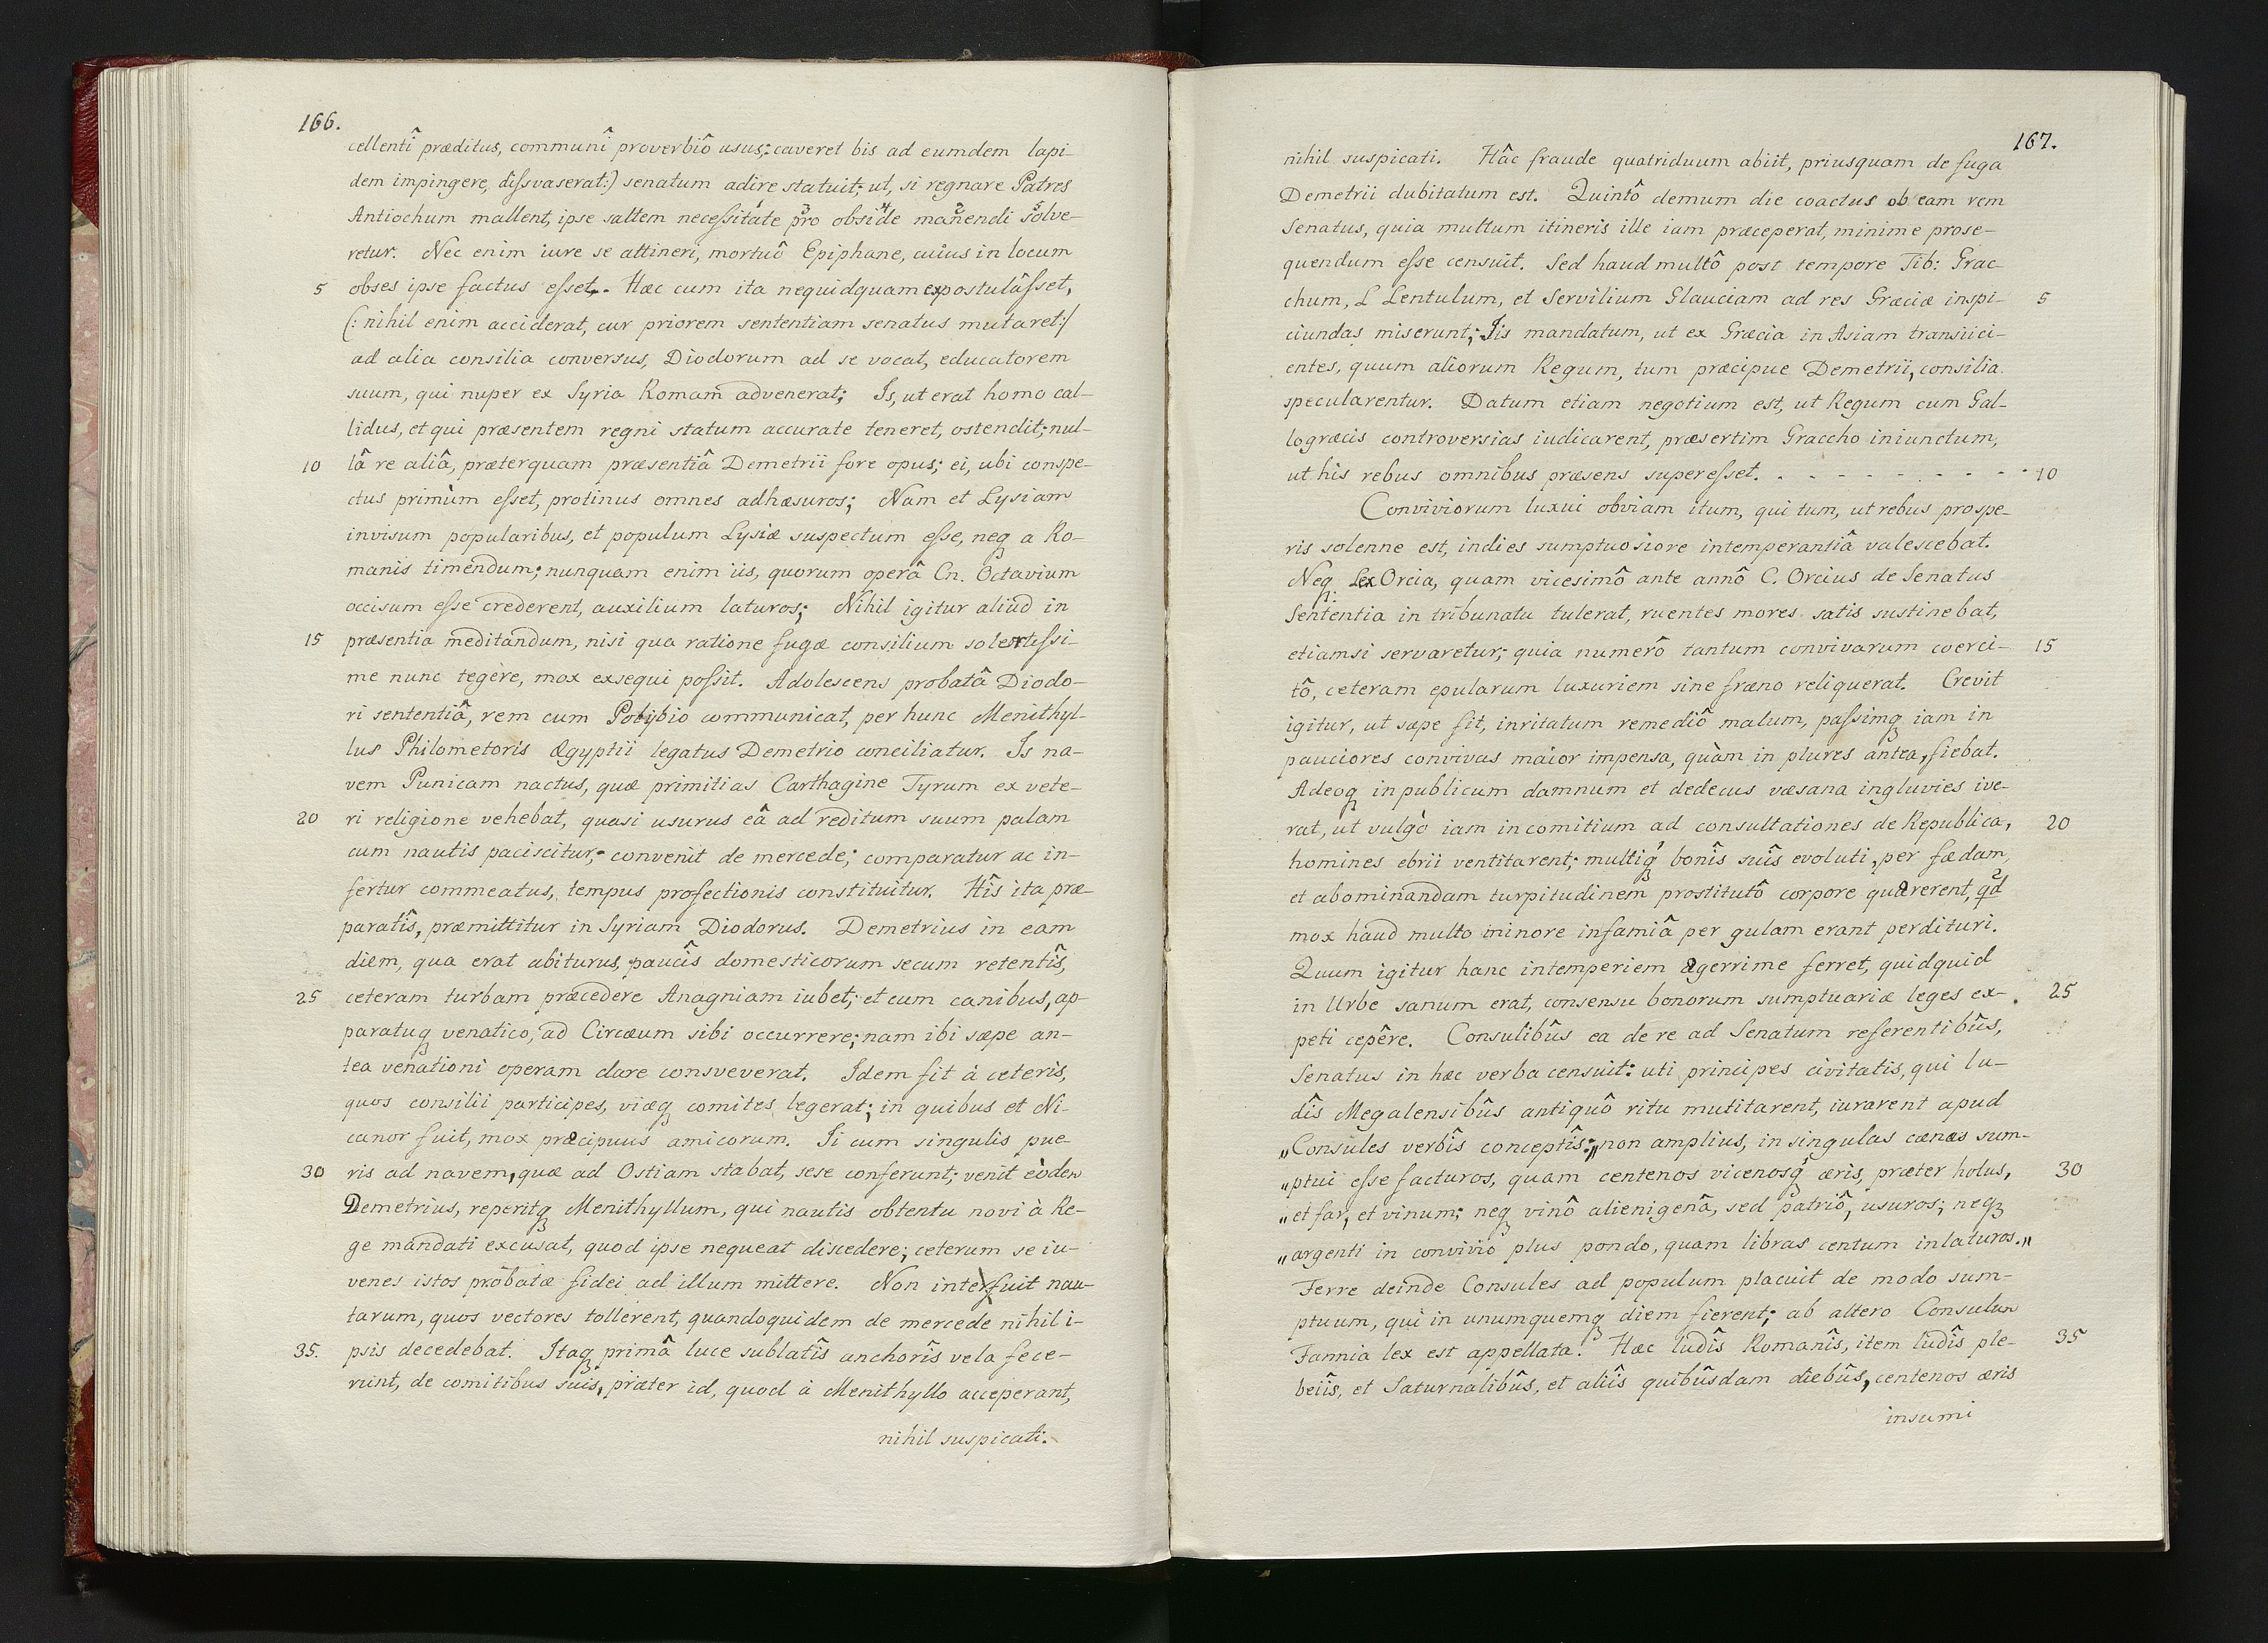 166.
cellentî præditus, communî proverbiô usus; caveret bis ad eumdem lapi-
dem impingere, dissvaserat:) senatum adire statuit; ut, si regnare Patres
Antiochum mallent, ipse saltem necessitate pro obside manendi solve-
retur. Nec enim iure se attineri, mortuô Epiphane, cuius in locum
5 obses ipse factus esset. Hæc cum ita nequidquam expostulâsset,
(: nihil enim acciderat, cur priorem sententiam senatus mutaret:)
ad alia consilia conversus, Diodorum ad se vocat, educatorem
suum, qui nuper ex Syria Romam advenerat; Is, ut erat homo cal-
lidus, et qui præsentem regni statum accurate teneret, ostendit; nul-
10 lâ re aliâ, præterquam præsentiâ Demetrii fore opus; ei, ubi conspe-
ctus primùm esset, protinus omnes adhæsuros; Nam et Lysiam
invisum popularibus, et populum Lysiæ suspectum esse, neqꝫ a Ro-
manis timendum; nunquam enim iis, quorum operâ Cn. Octavium
occisum esse crederent, auxilium laturos; Nihil igitur aliud in
15 præsentia meditandum, nisi qua ratione fugæ consilium solertissi-
me nunc tegere, mox exsequi possit. Adolescens probatâ Diodo-
ri sententiâ, rem cum Polybio communicat, per hunc Menithyl-
lus Philometoris Ægyptii legatus Demetrio conciliatur. Is na-
vem Punicam nactus, quæ primitias Carthagine Tyrum ex vete-
20 ri religione vehebat, quasi usurus eâ ad reditum suum palam
cum nautis paciscitur; convenit de mercede; comparatur ac in-
fertur commeatus, tempus profectionis constituitur. Hîs ita præ-
paratîs, præmittitur in Syriam Diodorus. Demetrius in eam
diem, qua erat abiturus, paucîs domesticorum secum retentîs,
25 ceteram turbam præcedere Anagniam iubet; et cum canibus, ap-
paratuqꝫ venatico, ad Circæum sibi occurrere; nam ibi sæpe an-
tea venationi operam dare consveverat. Idem fit à ceteris,
quos consilii participes, viæqꝫ comites legerat; in quibus et Ni-
canor fuit, mox præcipuus amicorum. Ii cum singulis pue-
30 ris ad navem, quæ ad Ostiam stabat, sese conferunt; venit eòdem
Demetrius, reperitqꝫ Menithyllum, qui nautis obtentu novi à Re-
ge mandati excusat, quod ipse nequeat discedere; ceterum se iu-
venes istos probatæ fidei ad illum mittere. Non interfuit nau-
tarum, quos vectores tollerent, quandoquidem de mercede nihil i-
35. psis decedebat. Itaqꝫ primâ luce sublatîs anchorîs vela fece-
runt, de comitibus suis, præter id, quod à Menithyllo acceperant,
nihil suspicati.
167.
nihil suspicati. Hâc fraude quatriduum abiit, priusquam de fuga
Demetrii dubitatum est. Quintô demum die coactus ob eam rem
Senatus, quia multum itineris ille iam præceperat, minime prose-
quendum esse censuit. Sed haud multô post tempore Tib: Grac-
chum, L Lentulum, et Servilium Glauciam ad res Græciæ inspi- 5
ciundas miserunt; Iis mandatum, ut ex Græcia in Asiam transiici-
entes, quum aliorum Regum, tum præcipue Demetrii, consilia
specularentur. Datum etiam negotium est, ut Regum cum Gal-
logræcis controversias iudicarent, præsertim Graccho iniunctum,
ut his rebus omnibus præsens superesset. . - - - - - - - 10
Conviviorum luxui obviam itum, qui tum, ut rebus prospe-
ris solenne est, indies sumptuosiore intemperantiâ valescebat.
Neqꝫ Lex Orcia, quam vicesimô ante annô C. Orcius de Senatus
Sententia in tribunatu tulerat, ruentes mores satis sustinebat,
etiamsi servaretur; quia numerô tantum convivarum coerci- 15
tô, ceteram epularum luxuriem sine fræno reliquerat. Crevit
igitur, ut sæpe fit, inritatum remediô malum, passimqꝫ iam in
pauciores convivas maior impensa, quàm in plures antea, fiebat.
Adeoqꝫ in publicum damnum et dedecus væsana ingluvies ive-
rat, ut vulgò iam in comitium ad consultationes de Republica, 20
homines ebrii ventitarent; multiqꝫ bonîs suîs evoluti, per fædam,
et abominandam turpitudinem prostitutô corpore quærerent, qd
mox haud multo minore infamiâ per gulam erant perdituri.
Quum igitur hanc intemperiem ægerrime ferret, quidquid
in Urbe sanum erat, consensu bonorum sumptuariæ leges ex- 25
peti cepêre. Consulibûs ea de re ad Senatum referentibûs,
Senatus in hæc verba censuit: uti principes civitatis, qui lu-
dîs Megalensibûs antiquô ritu mutitarent, iurarent apud
„Consules verbîs conceptîs: „non amplius, in singulas cænas sum-
„ptui esse facturos, quam centenos vicenosqꝫ æris, præter holus, 30
„et far, et vinum; neqꝫ vinô alienigenâ, sed patriô, usuros; neqꝫ
„argenti in convivio plus pondo, quam libras centum inlaturos.„
Ferre deinde Consules ad populum placuit de modo sum-
ptuum, qui in unumquemqꝫ diem fierent; ab altero Consulum
Fannia lex est appellata. Hæc ludîs Romanîs, item ludîs ple- 35
beiîs, et Saturnalibûs, et aliîs quibûsdam diebûs, centenos æris
insumi